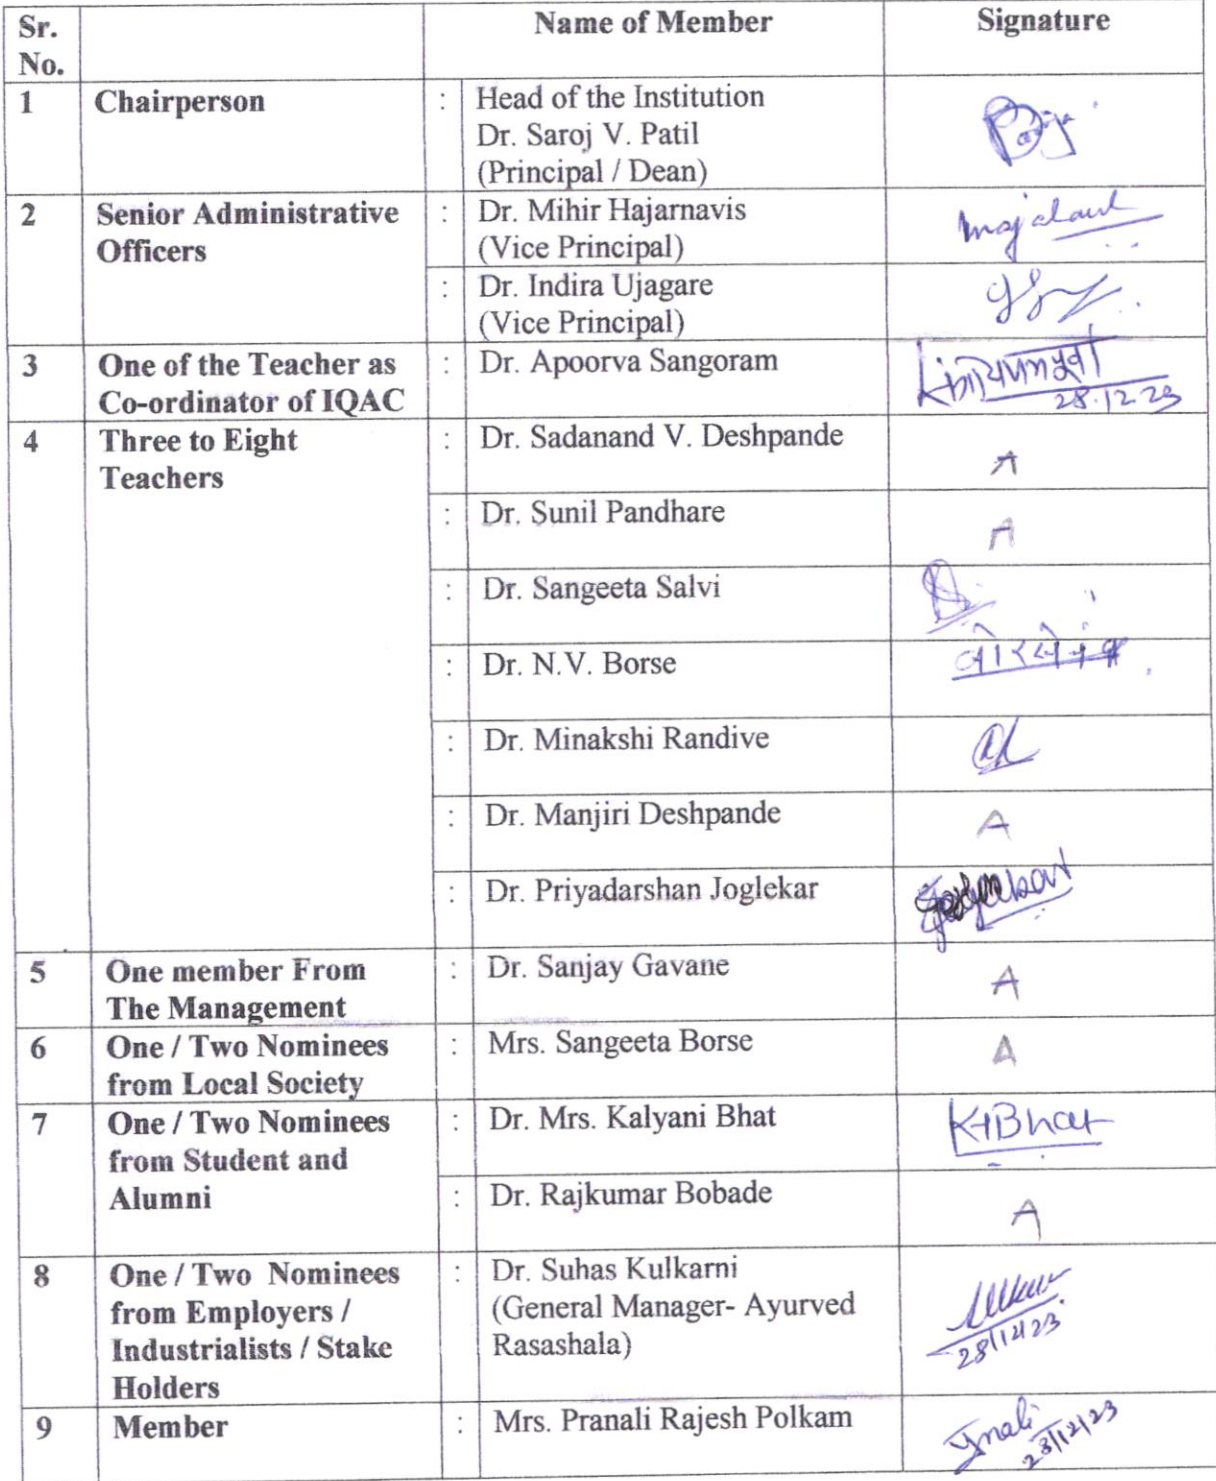 Sr.
No.
Name of Member
Signature
1
Chairperson
:
Head of the Institution
Dr. Saroj V. Patil
(Principal / Dean)
2
Senior Administrative
Officers
:
Dr. Mihir Hajarnavis
(Vice Principal)
:
Dr. Indira Ujagare
(Vice Principal)
3
One of the Teacher as
Co-ordinator of IQAC
:
Dr. Apoorva Sangoram
28.12.23
4
Three to Eight
Teachers
:
Dr. Sadanand V. Deshpande
A
:
Dr. Sunil Pandhare
A
:
Dr. Sangeeta Salvi
:
Dr. N.V. Borse
:
Dr. Minakshi Randive
:
Dr. Manjiri Deshpande
A
:
Dr. Priyadarshan Joglekar
5
One member From
The Management
:
Dr. Sanjay Gavane
A
6
One / Two Nominees
from Local Society
:
Mrs. Sangeeta Borse
A
7
One / Two Nominees
from Student and
Alumni
:
Dr. Mrs. Kalyani Bhat
KABhat
:
Dr. Rajkumar Bobade
A
8
One / Two Nominees
from Employers /
Industrialists / Stake
Holders
:
Dr. Suhas Kulkarni
(General Manager- Ayurved
Rasashala)
28/12/23
9
Member
:
Mrs. Pranali Rajesh Polkam
28/12/23